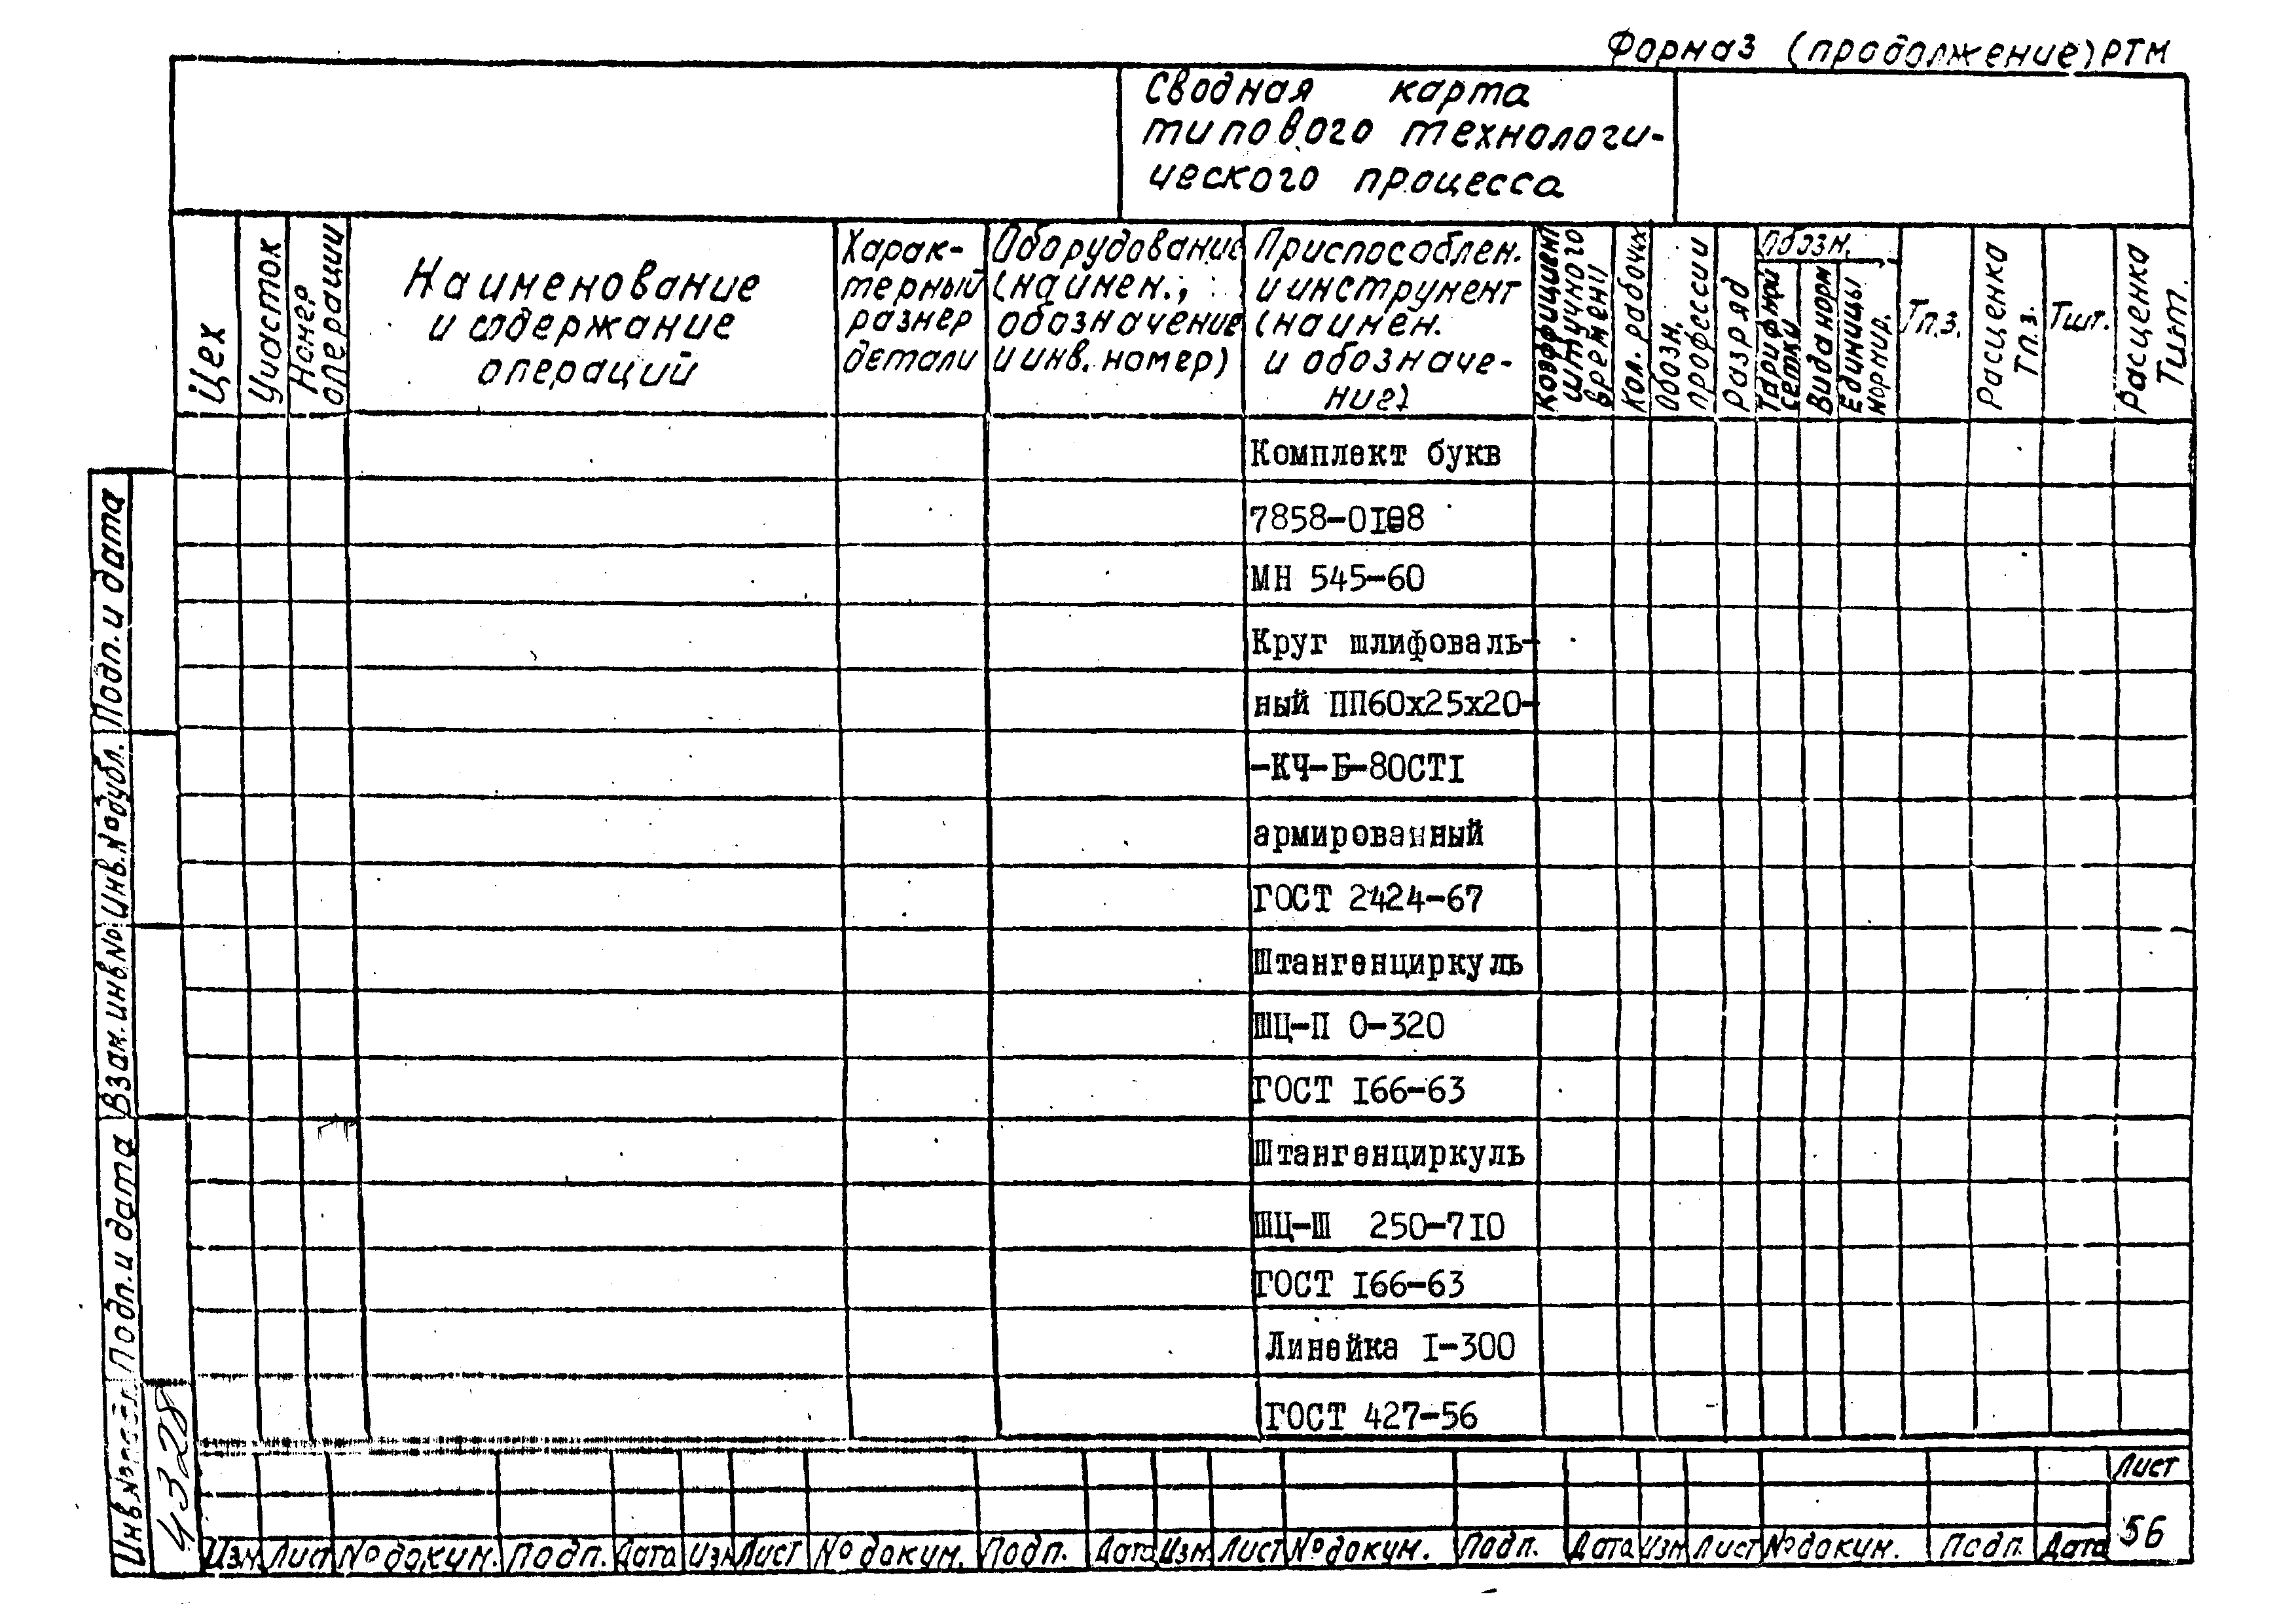 Форма3 (продолжение) РТМ
Сводная карта
типового технологи-
ческого процесса
Цех
Участок
Номер
операции
Наименование
и содержание
операций
Харак-
терный
размер
детали
Оборудование
(наимен.,
обозначение
и инв. номер)
Приспособлен.
и инструмент
(наимен.
и обозначе-
ние)
Коэффициент
штучного
времени
Кол. рабочих
Обозн.
профессии
Разряд
Обозн.
Тарифной
сетки
Вида норм
Единицы
нормир.
Тп.з.
Расценка
Тп.з.
Тшт.
Расценка
Тшт.
Комплект букв
МН 545-60
Круг шлифоваль-
ный ПП60х25х20-
-КЧ-Б-80СТI
армированный
ГОСТ 2424-67
Штангенциркуль
ШЦ-П 0-320
ГОСТ I66-63
Штангенциркуль
ШЦ-Ш 250-7I0
ГОСТ I66-63
Линейка I-300
ГОСТ 427-56
Подп. и дата
Инв. № дубл.
Взам. инв. №
Подп. и дата
Инв. №
4328
Изм Лист № докум. Подп. Дата Изм Лист № докум. Подп. Дата Изм Лист № докум. Подп. Дата Изм Лист № докум. Подп. Дата
Лист
56